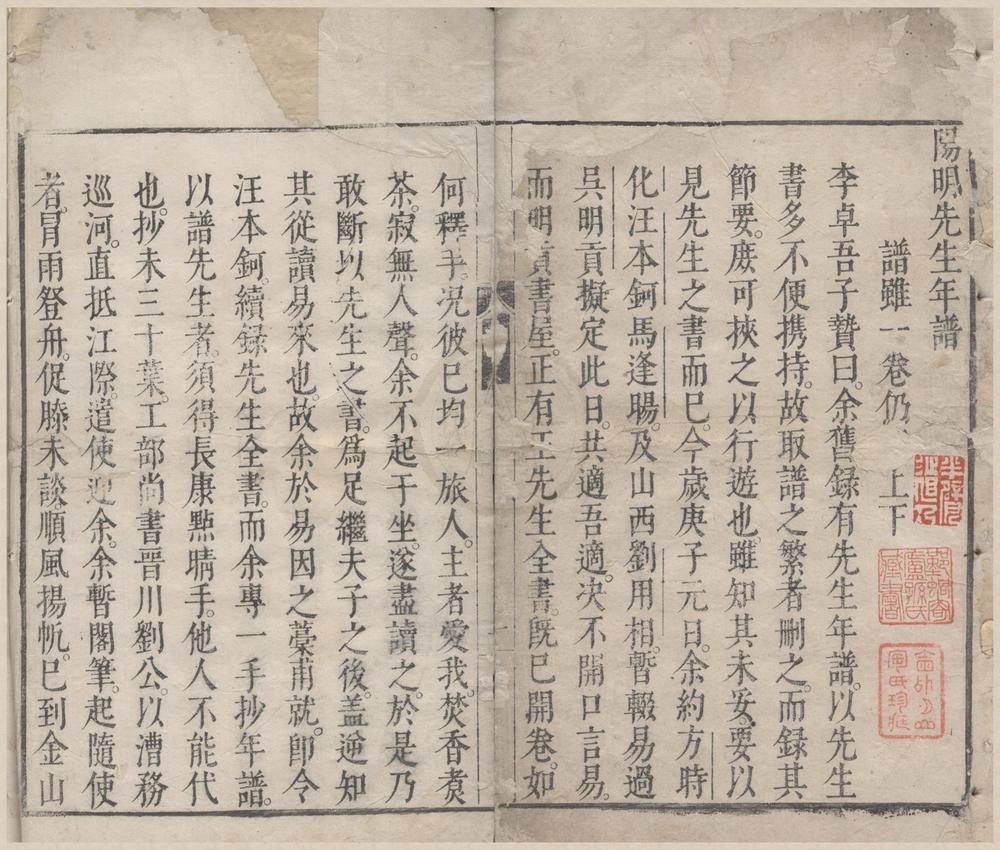 陽明先生年譜
譜雖一卷仍、上下
李卓吾子贊曰。余舊録有先生年譜。以先生
書多不便携持。故取譜之繁者刪之。而録其
節要。庶可挾之以行遊也。雖知其未妥。要以
見先生之書而已。今歲庚子元日。余約方時
化汪本鈳馬逢暘。及山西劉用相。暫輟易過
吳明貢擬定此日。共適吾適。决不開口言易。
而明貢書屋。正有王先生全書。旣已開卷。如
何釋手。况彼已均一旅人。主者愛我。焚香煑
茶。寂無人聲。余不起于坐。遂盡讀之。於是乃
敢斷以先生之書。爲足繼夫子之後。盖逆知
其從讀易來也。故余於易因之藁甫就。卽令
汪本鈳。續録先生全書。而余專一手抄年譜。
以譜先生者。須得長康㸃睛手。他人不能代
也。抄未三十葉。工部尚書晉川劉公。以漕務
巡河。直抵江際。遣使迎余。余暫閣筆。起隨使
者。冒雨登舟。促膝未談。順風揚帆。已到金山